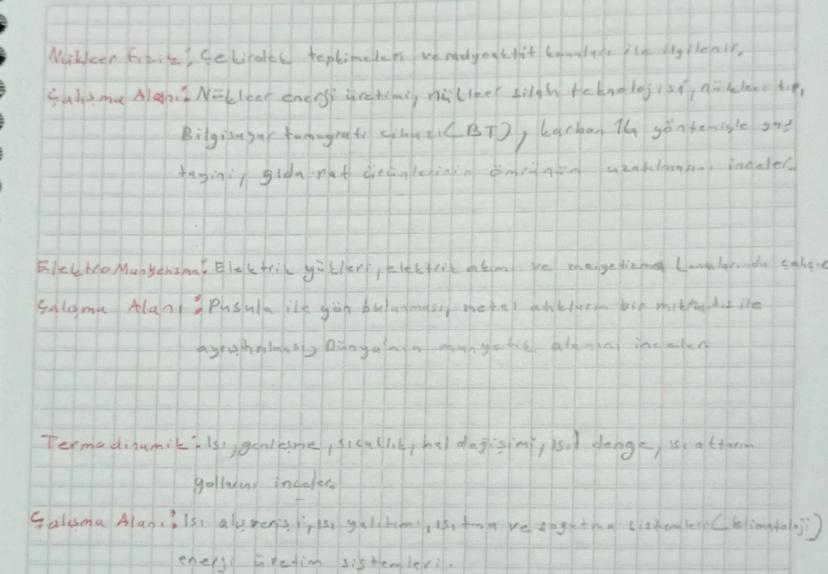 Nükleer Fizik: Çekirdek tepkimeleri ve radyoaktif konuları ile ilgilenir.
Çalışma Alanı: Nükleer enerji üretimi, nükleer silah teknolojisi, nükleer tıp,
Bilgisayar tomografi cihazı (BT), karbon 14 yöntemiyle yaş
tayini, gıda ürünlerinin ömrünün uzatılması inceler
Elektro Manyetizma: Elektrik yükleri, elektrik akımı ve manyetizma konularında
Çalışma Alanı: Pusula ile yön bulunması, metal atıkların bir mıknatıs ile
ayrıştırılması, Dünya'nın manyetik alanını inceler
Termodinamik: Isı, genleşme, sıcaklık, hal değişimi, ısıl denge, ısı aktarım
yollarını inceler.
Çalışma Alanı: Isı alışverişi, ısı yalıtımı, ısıtma ve soğutma sistemleri (klimataloji)
enerji üretim sistemleri.